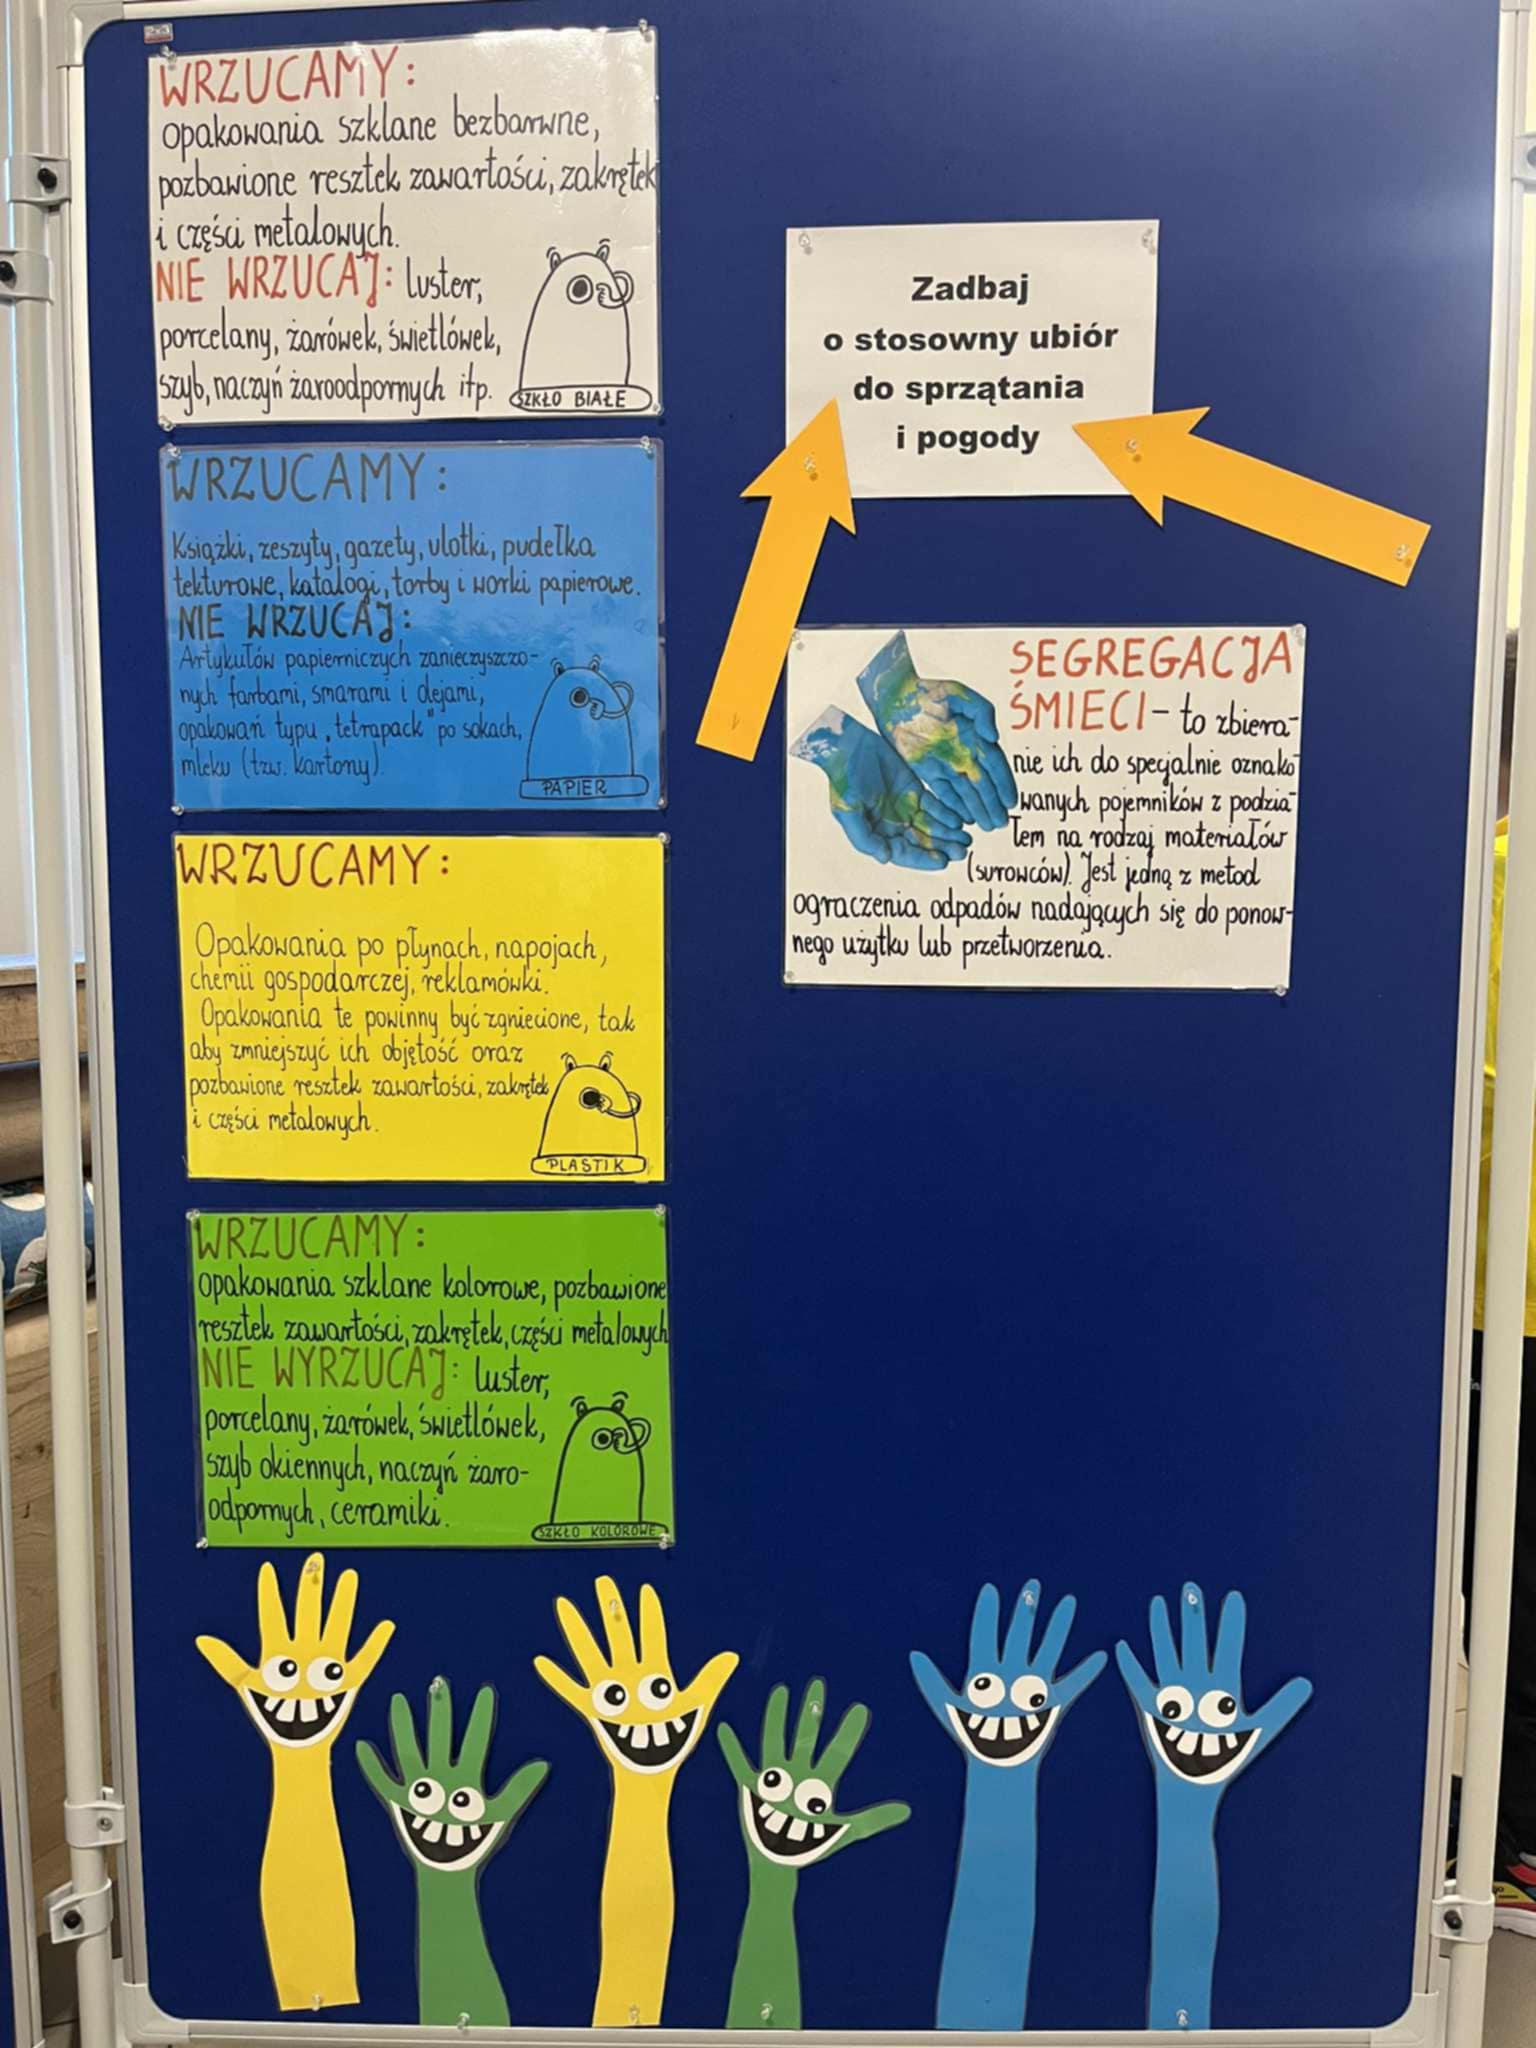 WRZUCAMY:
opakowania szklane bezbarwne,
pozbawione resztek zawartości, zakrętek
i części metalowych.
NIE WRZUCAJ: luster,
porcelany, żarówek, świetlówek,
szyb, naczyń żaroodpornych itp.
SZKŁO BIAŁE
WRZUCAMY:
Książki, zeszyty, gazety, ulotki, pudełka
tekturowe, katalogi, torby i worki papierowe.
NIE WRZUCAJ:
Artykułów papierniczych zanieczyszczo-
nych farbami, smarami i olejami,
opakowań typu „tetrapack" po sokach,
mleku (tzw. kartony).
PAPIER
WRZUCAMY:
Opakowania po płynach, napojach,
chemii gospodarczej, reklamówki.
Opakowania te powinny być zgniecione, tak
aby zmniejszyć ich objętość oraz
pozbawione resztek zawartości, zakrętek
i części metalowych.
PLASTIK
WRZUCAMY:
opakowania szklane kolorowe, pozbawione
resztek zawartości, zakrętek, części metalowych
NIE WYRZUCAJ: luster,
porcelany, żarówek, świetlówek,
szyb okiennych, naczyń żaro-
odpornych, ceramiki.
SZKŁO KOLOROWE
Zadbaj
o stosowny ubiór
do sprzątania
i pogody
SEGREGACJA
ŚMIECI - to zbiera-
nie ich do specjalnie oznako-
wanych pojemników z podzia-
łem na rodzaj materiałów
(surowców). Jest jedną z metod
ograczenia odpadów nadających się do ponow-
nego użytku lub przetworzenia.